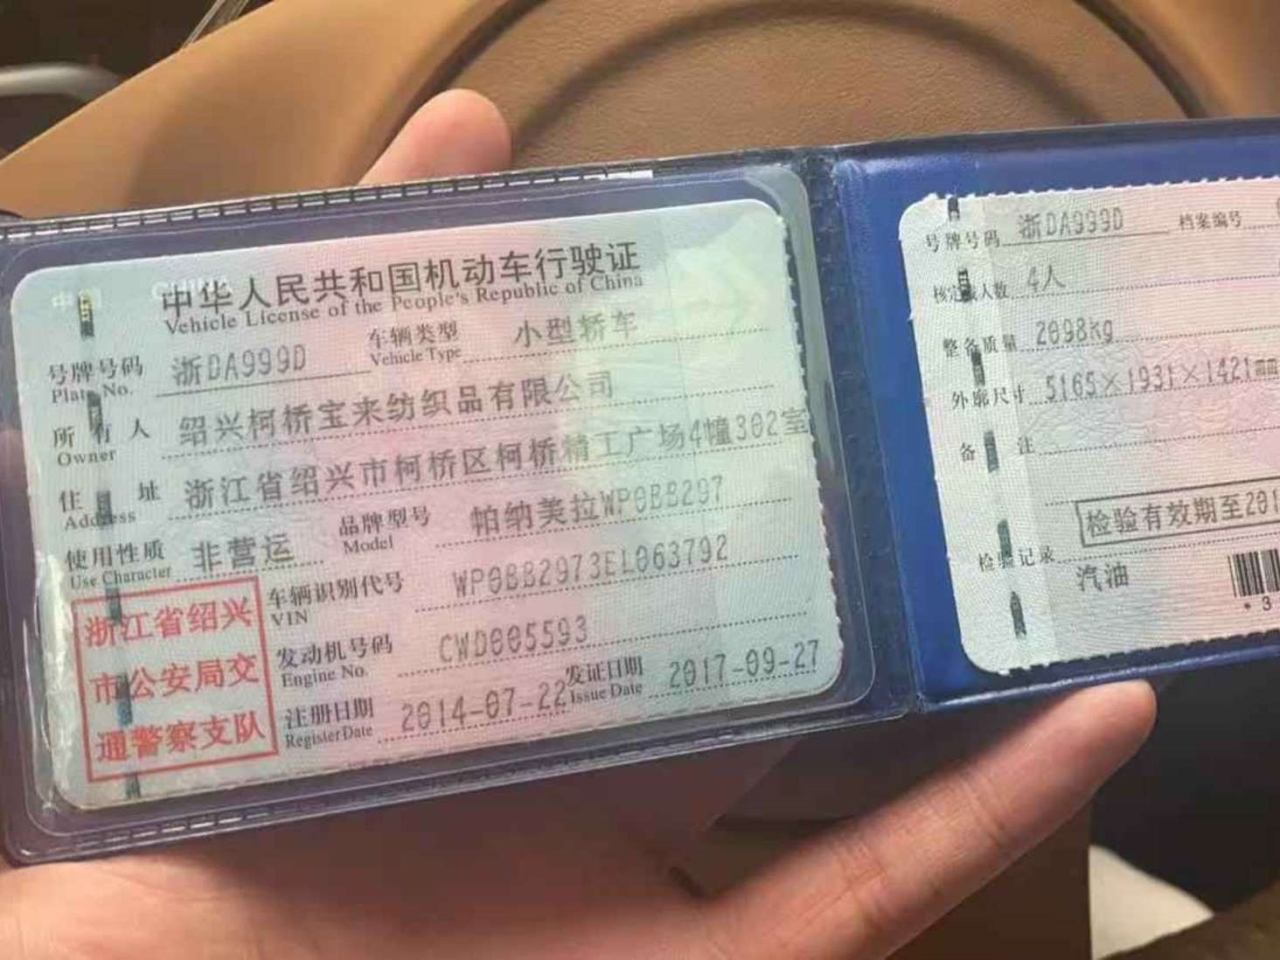 中华人民共和国机动车行驶证
Vehicle License of the People's Republic of China
号牌号码 浙DA999D 车辆类型 小型轿车
Plate No. Vehicle Type
所有人 绍兴柯桥宝来纺织品有限公司
Owner
住址 浙江省绍兴市柯桥区柯桥精工广场4幢302室
Address
使用性质 非营运 品牌型号 帕纳美拉WP0BB297
Use Character Model
车辆识别代号 WP0BB2973EL063792
VIN
发动机号码 CWD005593
Engine No.
注册日期 2014-07-22 发证日期 2017-09-27
Register Date Issue Date
浙江省绍兴
市公安局交
通警察支队
号牌号码 浙DA999D 档案编号
核定载人数 4人
整备质量 2098kg
外廓尺寸 5165×1931×1421mm
备注
检验有效期至201
检验记录
汽油
*3